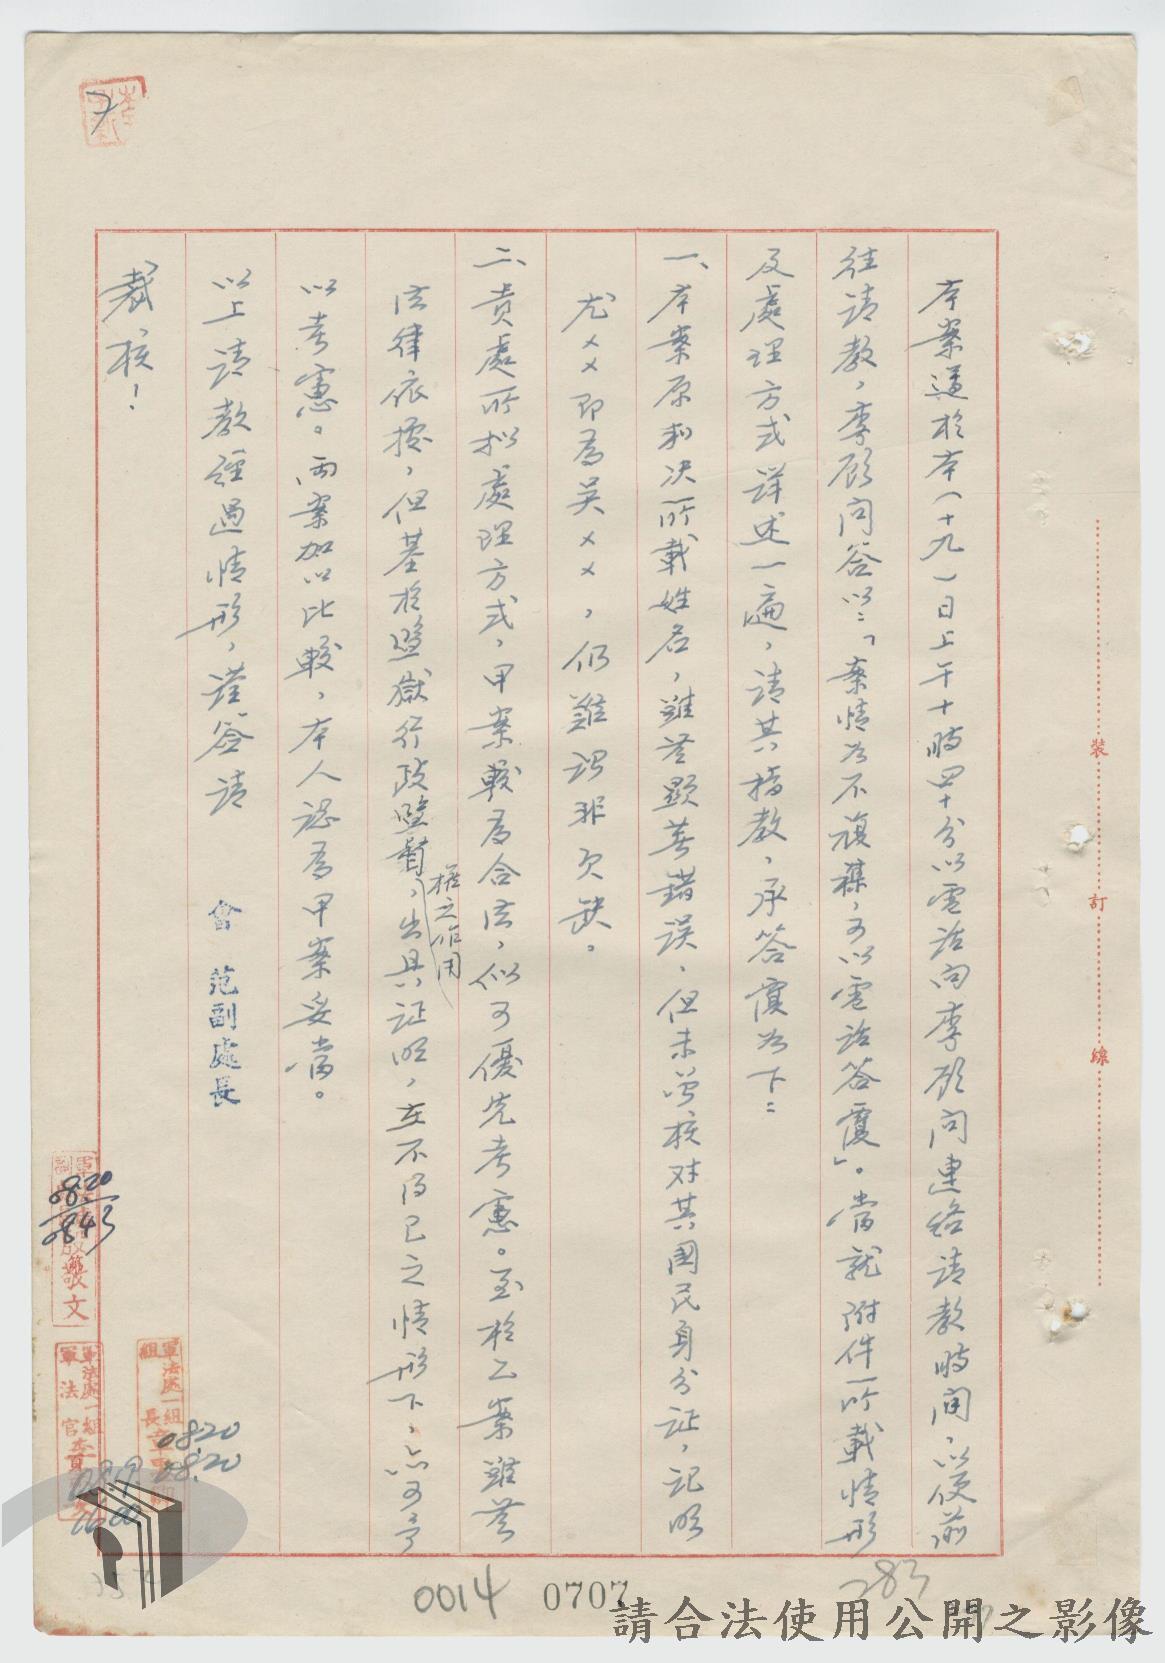 本案遵於本(十九)日上午十時四十分以電話向李顧問連絡請教時間，以便前
往請教，李顧問答以：「案情如不複襍，可以電話答覆」。當就附件所載情形
及處理方式詳述一遍，請其指教，承答覆如下：
一、本案原判決所載姓名，雖無顯著錯誤，但未曾核対其國民身分証，記明
尤××即為吳××，仍難謂非欠缺。
二、貴處所拟處理方式，甲案較為合法，似可優先考慮。至於乙案雖無
法律依據，但基於監獄行政監督
权之作用
，出具証明，在不得已之情形下，亦可予
以考慮。兩案加以比較，本人認為甲案妥當。
以上請教經過情形，謹簽請
會 范副處長
裁核！
裝
訂
線
7
0820
0843
敬文
軍法處一組
軍法官
軍法處一組
組長
0820
0820
0819
1600
0014
0707
283
請合法使用公開之影像